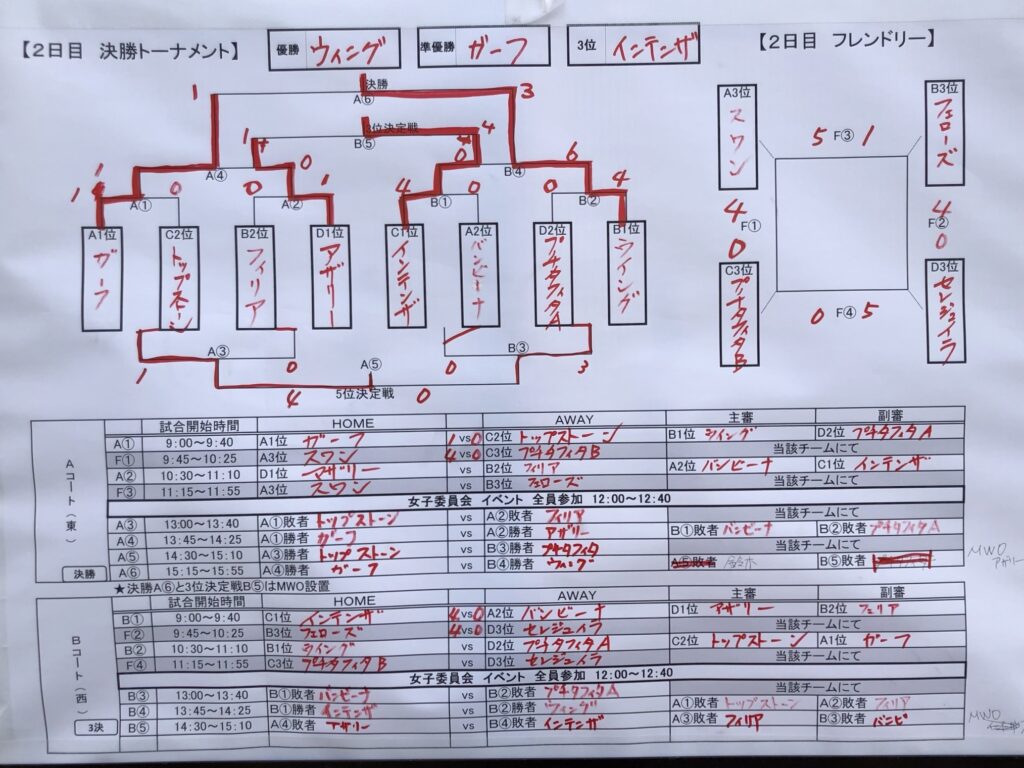 【2日目 決勝トーナメント】
優勝 ウィング
準優勝 ガーフ
3位 インテンザ
【2日目 フレンドリー】
決勝
1 A⑥ 3
3位決定戦
1 B⑤ 4
A④ 0 0 B④ 6
1 A① 0 0 A② 1 4 B① 0 0 B② 4
A1位 ガーフ
C2位 トップストーン
B2位 フィリア
D1位 アザリー
C1位 インテンザ
A2位 バンビーナ
D2位 プチタフィタA
B1位 ウイング
A③ B③
1 0 0 3
A⑤
4 5位決定戦 0
A3位 スワン
B3位 フェローズ
5 F③ 1
4 F① 0
4 F② 0
C3位 プチタフィタB
D3位 セレジェイラ
0 F④ 5
Aコート(東)
試合開始時間 HOME AWAY 主審 副審
A① 9:00~9:40 A1位 ガーフ 1 vs 0 C2位 トップストーン B1位 ウイング D2位 プチタフィタA
F① 9:45~10:25 A3位 スワン 4 vs 0 C3位 プチタフィタB 当該チームにて
A② 10:30~11:10 D1位 アザリー vs B2位 フィリア A2位 バンビーナ C1位 インテンザ
F③ 11:15~11:55 A3位 スワン vs B3位 フェローズ 当該チームにて
女子委員会 イベント 全員参加 12:00~12:40
A③ 13:00~13:40 A①敗者 トップストーン vs A②敗者 フィリア 当該チームにて
A④ 13:45~14:25 A①勝者 ガーフ vs A②勝者 アザリー B①敗者 バンビーナ B②敗者 プチタフィタA
A⑤ 14:30~15:10 A③勝者 トップストーン vs B③勝者 プチタフィタ 当該チームにて
A⑥ 15:15~15:55 A④勝者 ガーフ vs B④勝者 ウィング A⑤敗者 鈴木 B⑤敗者
MWO アザリー
決勝
★決勝A⑥と3位決定戦B⑤はMWO設置
Bコート(西)
試合開始時間 HOME AWAY 主審 副審
B① 9:00~9:40 C1位 インテンザ 4 vs 0 A2位 バンビーナ D1位 アザリー B2位 フェリア
F② 9:45~10:25 B3位 フェローズ 4 vs 0 D3位 セレジェイラ 当該チームにて
B② 10:30~11:10 B1位 ウイング vs D2位 プチタフィタA C2位 トップストーン A1位 ガーフ
F④ 11:15~11:55 C3位 プチタフィタB vs D3位 セレジェイラ 当該チームにて
女子委員会 イベント 全員参加 12:00~12:40
B③ 13:00~13:40 B①敗者 バンビーナ vs B②敗者 プチタフィタA 当該チームにて
B④ 13:45~14:25 B①勝者 インテンザ vs B②勝者 ウィング A①敗者 トップストーン A②敗者 フィリア
B⑤ 14:30~15:10 A④敗者 アザリー vs B④敗者 インテンザ A③敗者 フィリア B③敗者 バンビ
MWO
3決